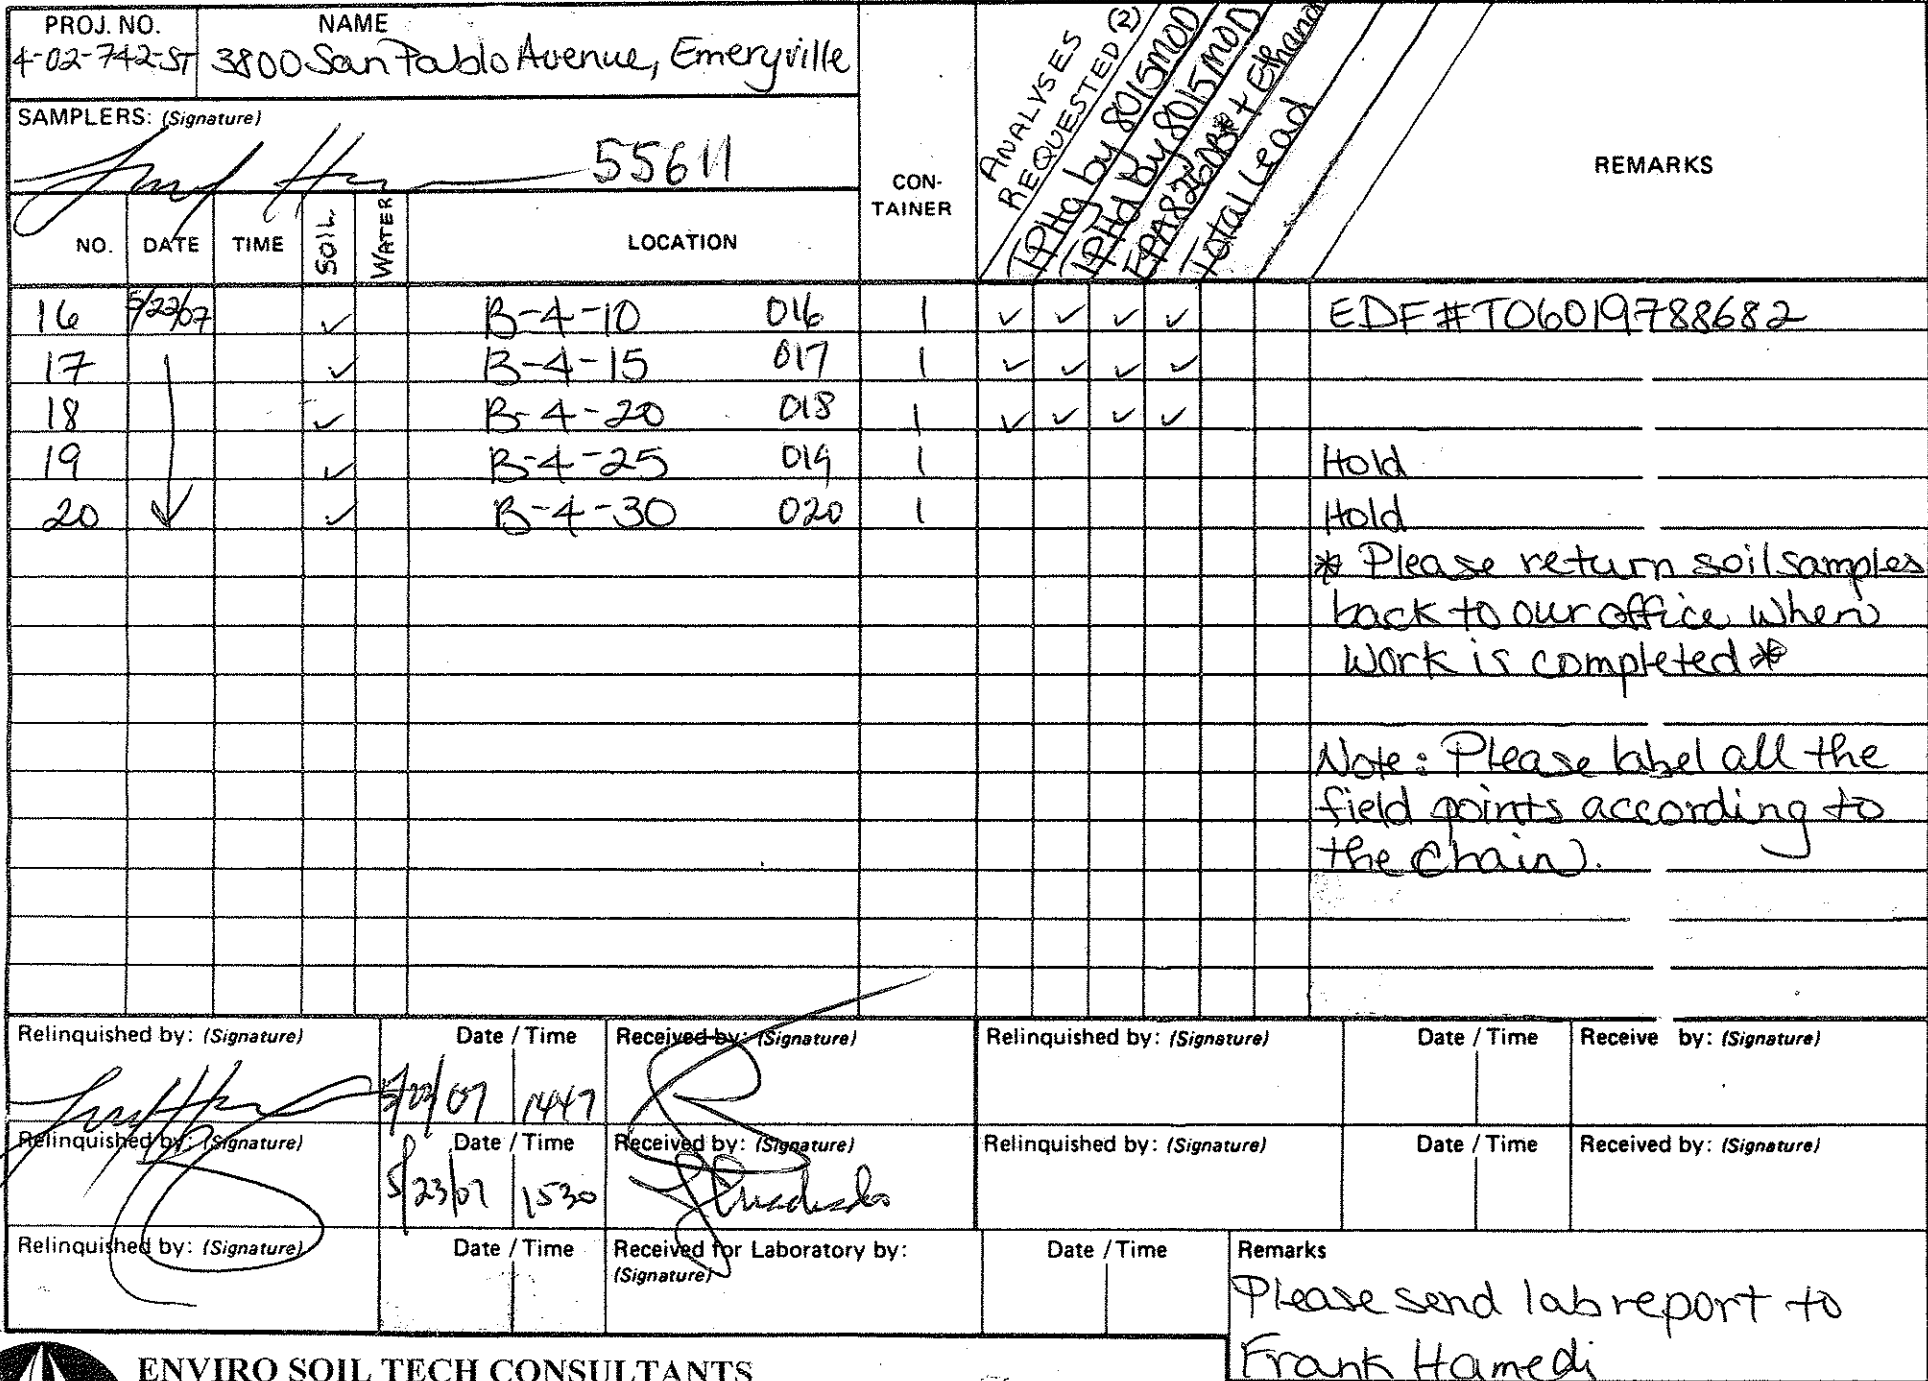 PROJ. NO. NAME
4-02-742-ST 3800 San Pablo Avenue, Emeryville
SAMPLERS: (Signature)
55611
CON-
TAINER
ANALYSES
REQUESTED (2)
TPHg by 8015MOD
TPHd by 8015MOD
EPA8260B* + Ethanol
Total Lead
REMARKS
NO. DATE TIME SOIL WATER LOCATION
16 5/22/07 ✓ B-4-10 016 1 ✓ ✓ ✓ ✓ EDF#T06019788682
17 ✓ B-4-15 017 1 ✓ ✓ ✓ ✓
18 ✓ B-4-20 018 1 ✓ ✓ ✓ ✓
19 ✓ B-4-25 019 1 Hold
20 ✓ B-4-30 020 1 Hold
* Please return soil samples
back to our office when
work is completed *
Note: Please label all the
field points according to
the chain.
Relinquished by: (Signature) Date / Time Received by: (Signature) Relinquished by: (Signature) Date / Time Receive by: (Signature)
1447
Relinquished by: (Signature) Date / Time Received by: (Signature) Relinquished by: (Signature) Date / Time Received by: (Signature)
5/23/07 1530
Relinquished by: (Signature) Date / Time Received for Laboratory by: Date / Time Remarks
(Signature)
Please send lab report to
Frank Hamedi
ENVIRO SOIL TECH CONSULTANTS